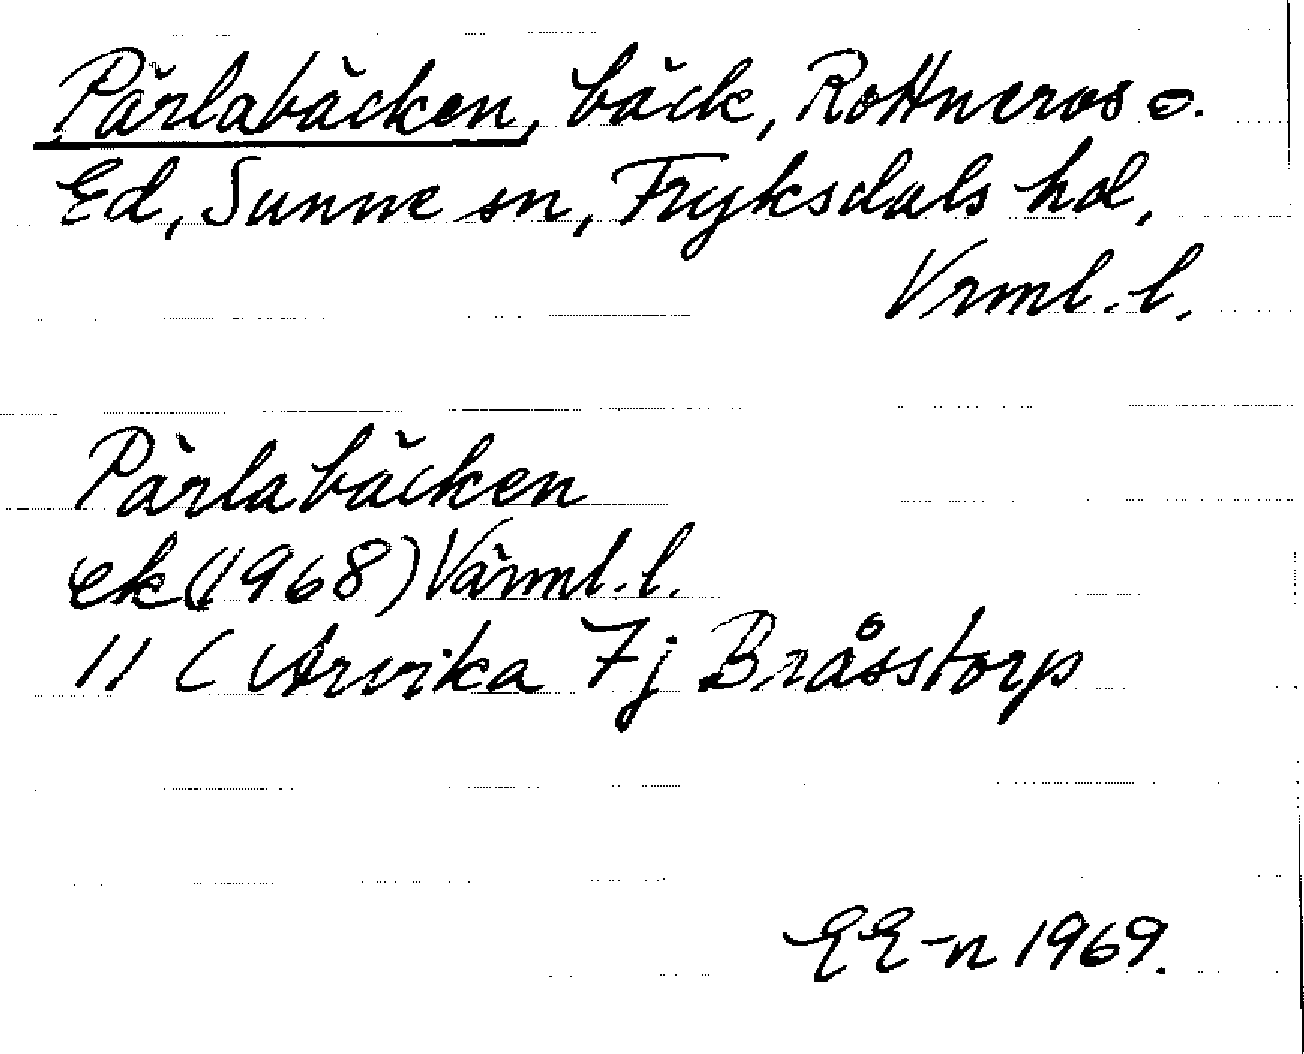 Pärlabäcken, bäck, Rottneros o.
Ed, Sunne sn, Fryksdals hd,
Vrml. l.
Pärlabäcken
ek (1968) Värml. l.
11 C Arvika 7j Bråsstorp
EE-n 1969.